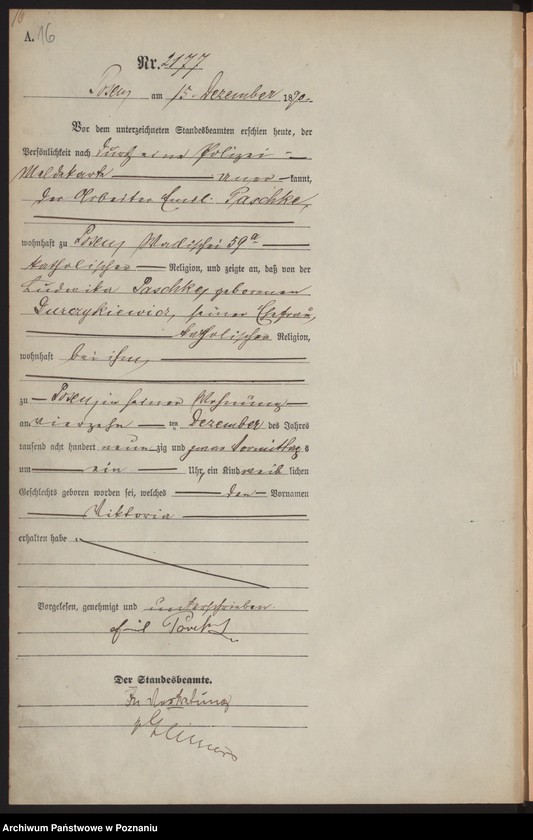 16
A. 16
Nr. 2177
Posen am 15. Dezember 1890.
Vor dem unterzeichneten Standesbeamten erschien heute, der
Persönlichkeit nach durch eine Polizei-
Meldekarte aner-kannt,
der Arbeiter Emil Paschke,
wohnhaft zu Posen, Wallischei 59a
katholischer Religion, und zeigte an, daß von der
Ludwika Paschke, geborenen
seiner Ehefrau,
katholischer Religion,
wohnhaft bei ihm,
zu Posen, in seiner Wohnung
am vierzehnten Dezember des Jahres
tausend acht hundert neunzig und zwar Vormittags
um ein Uhr, ein Kind weiblichen
Geschlechts geboren worden sei, welches den Vornamen
Viktoria
erhalten habe.
Vorgelesen, genehmigt und unterschrieben
Emil
Der Standesbeamte.
In Vertretung
Archiwum Państwowe w Poznaniu